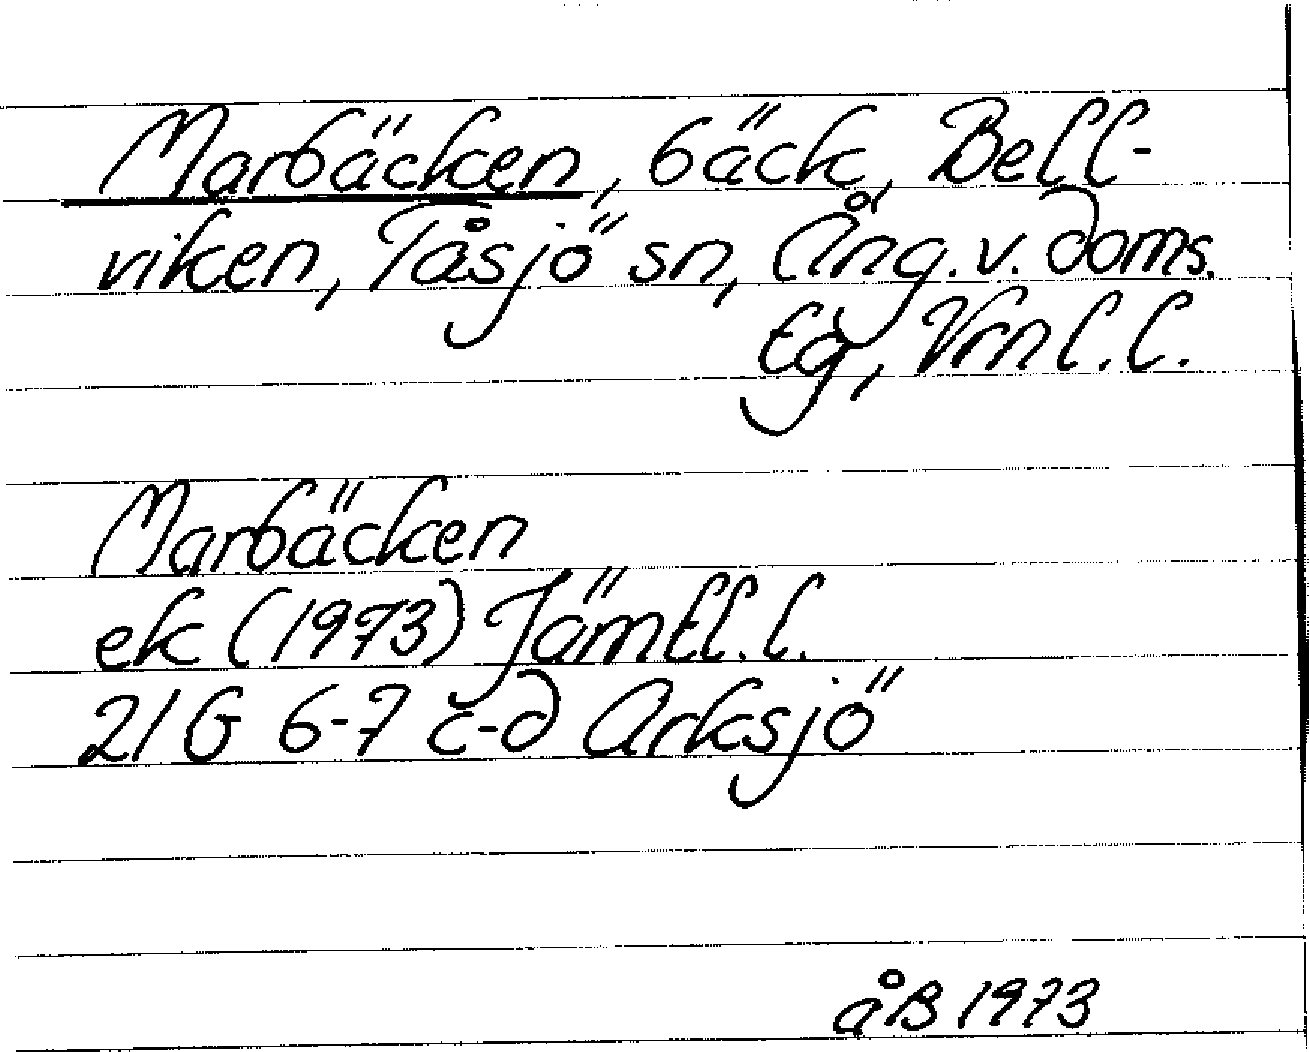 Marbäcken, bäck, Bell-
viken, Tåsjö sn, Ång. v. doms.
tg, Vrnl. l.
Marbäcken
ek (1973) Jämtl. l.
21 G 6-7 c-d Arksjö
åB 1973